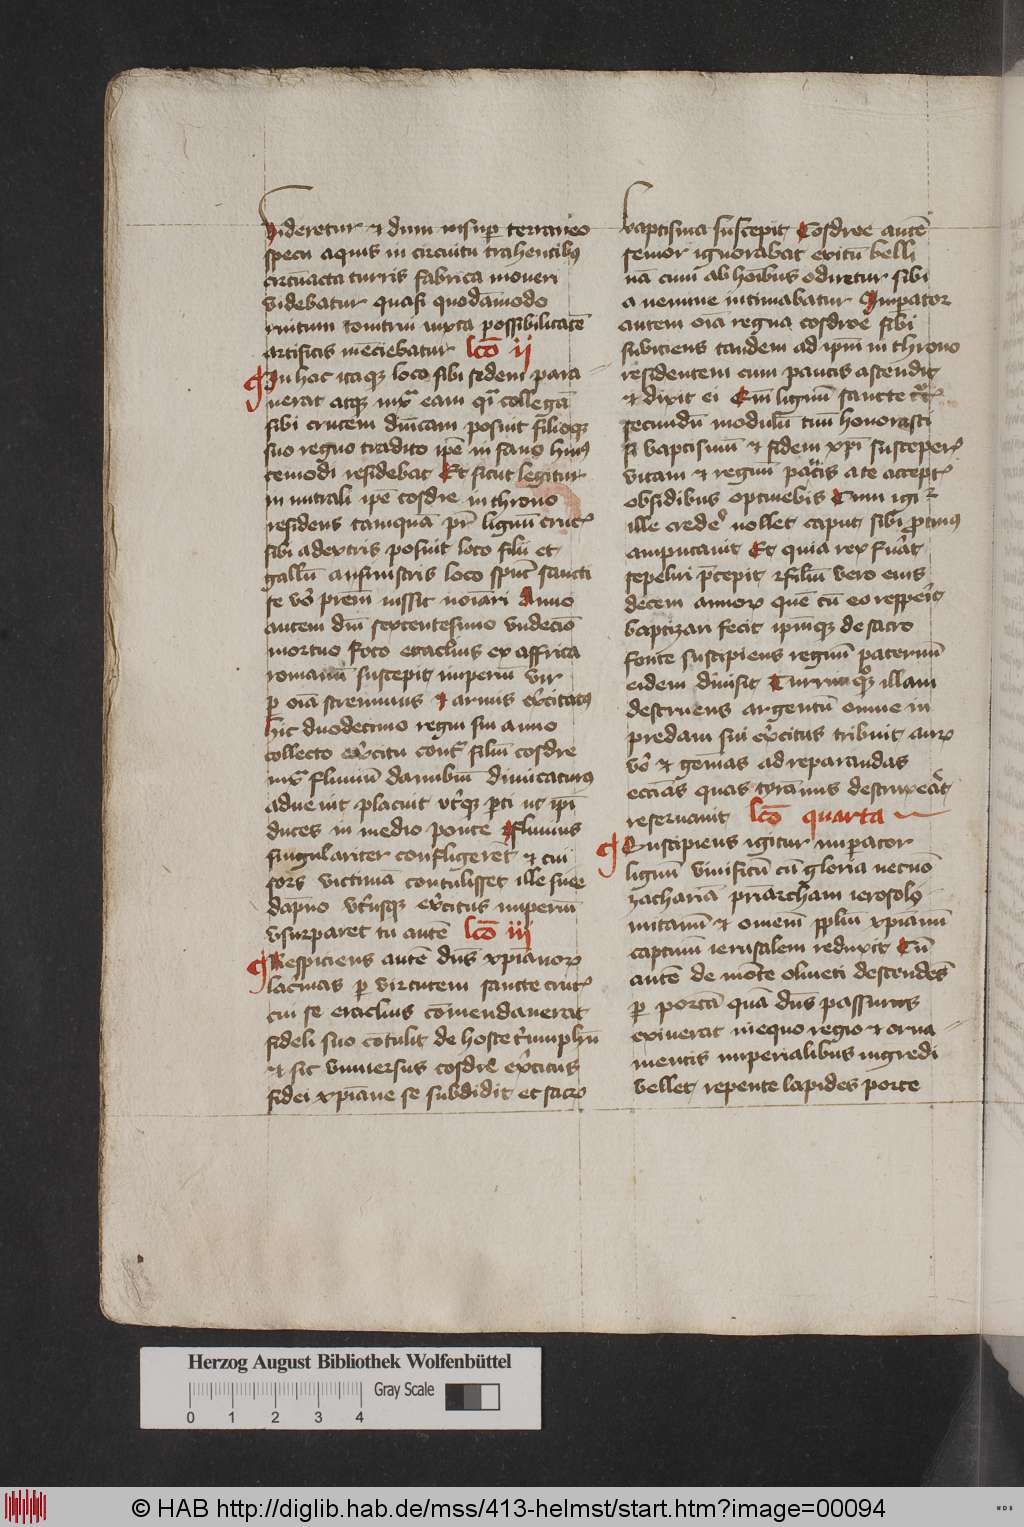 videretur et dum insup terraneo
specu aquis in circuitu trahentibus
circūacta turris fabrica moveri
videbatur quasi quodāmodo
ruitum tonitru iuxta possibilitatē
artificis mēciebatur lcō ii
In hac itaque loco sibi sedem para
verat atque iuxta eam qi collegā
sibi crucem dnīcam posuit filioque
suo regno tradito ipē in fano huius
cemodi residebat Et sicut legitur
in mitrali ipe cosdre in throno
residens tamquā pr lignū crucis
sibi a dextris posuit loco filii et
gallū a sinistris loco spūs sancti
se vō prem iussit noīari Anno
autem dnī sexcentesimo undecīo
mortuo foco eraclius ex affrica
romanū suscepit imperiū vir
p oīa strennuus et armis exercitatus
hic duodecimo regni sui anno
collecto exercitu cont filiū cosdre
iuxta fluviū danubiū dimicaturus
advenit placuit utrique pti ut ipī
duces in medio ponte fluvius
singulariter confligerēt et cui
sors victimā contulisset ille sine
dapno utriusque exercitus imperiū
usurparet tū autē lcō iii
Respiciens autē dns xpianorum
lacrimas p virtutem sancte crucis
cui se eraclius cōmendaverat
fideli suo cōtulit de hoste triumphū
et sic universus cosdre exercitus
fidei xpiane se subdidit et sacro
baptisma suscepit Cosdroe autē
semor ignorabat exitū belli
nā cum ab hoībus odiretur sibi
a nemine intimabatur Imperator
autem oīa regna cosdroe sibi
subiciens tandem ad ipm in throno
residentem cum paucis ascendit
et dixit ei Cm lignū sancte cruc
secundū modulū tuū honorasti
si baptismū et fidem xpi susceperis
vitam et regnū paucis a te acceptis
obsidibus optinebis Cum igitur
ille credere nollet caput sibi protinus
amputavit Et quia rex fuerat
sepeliri precepit et filiū vero eius
decem annorum quē cū eo repperit
baptizari fecit ipmque de sacro
fonte suscipiens regnū paternū
eidem dimisit Turrimque illam
destruens argentū omne in
predam sui exercitus tribuit aurum
vō et gemas ad reparandas
eccīas quas tyrānus destruxerat
reservavit lcō quarta
Suscipiens igitur imperator
lignū vivificū cū gloria necnō
zachariā priarcham ierosoly
mitanū et omnem pplm xpianū
captivū ierusalem reduxit Cū
autē de mōte oliveti descendēs
p portā quā dns passurus
exiverat in equo regio et orna
mentis imperialibus ingredi
vellet repente lapides porte
Herzog August Bibliothek Wolfenbüttel
Gray Scale
0 1 2 3 4
© HAB http://diglib.hab.de/mss/413-helmst/start.htm?image=00094